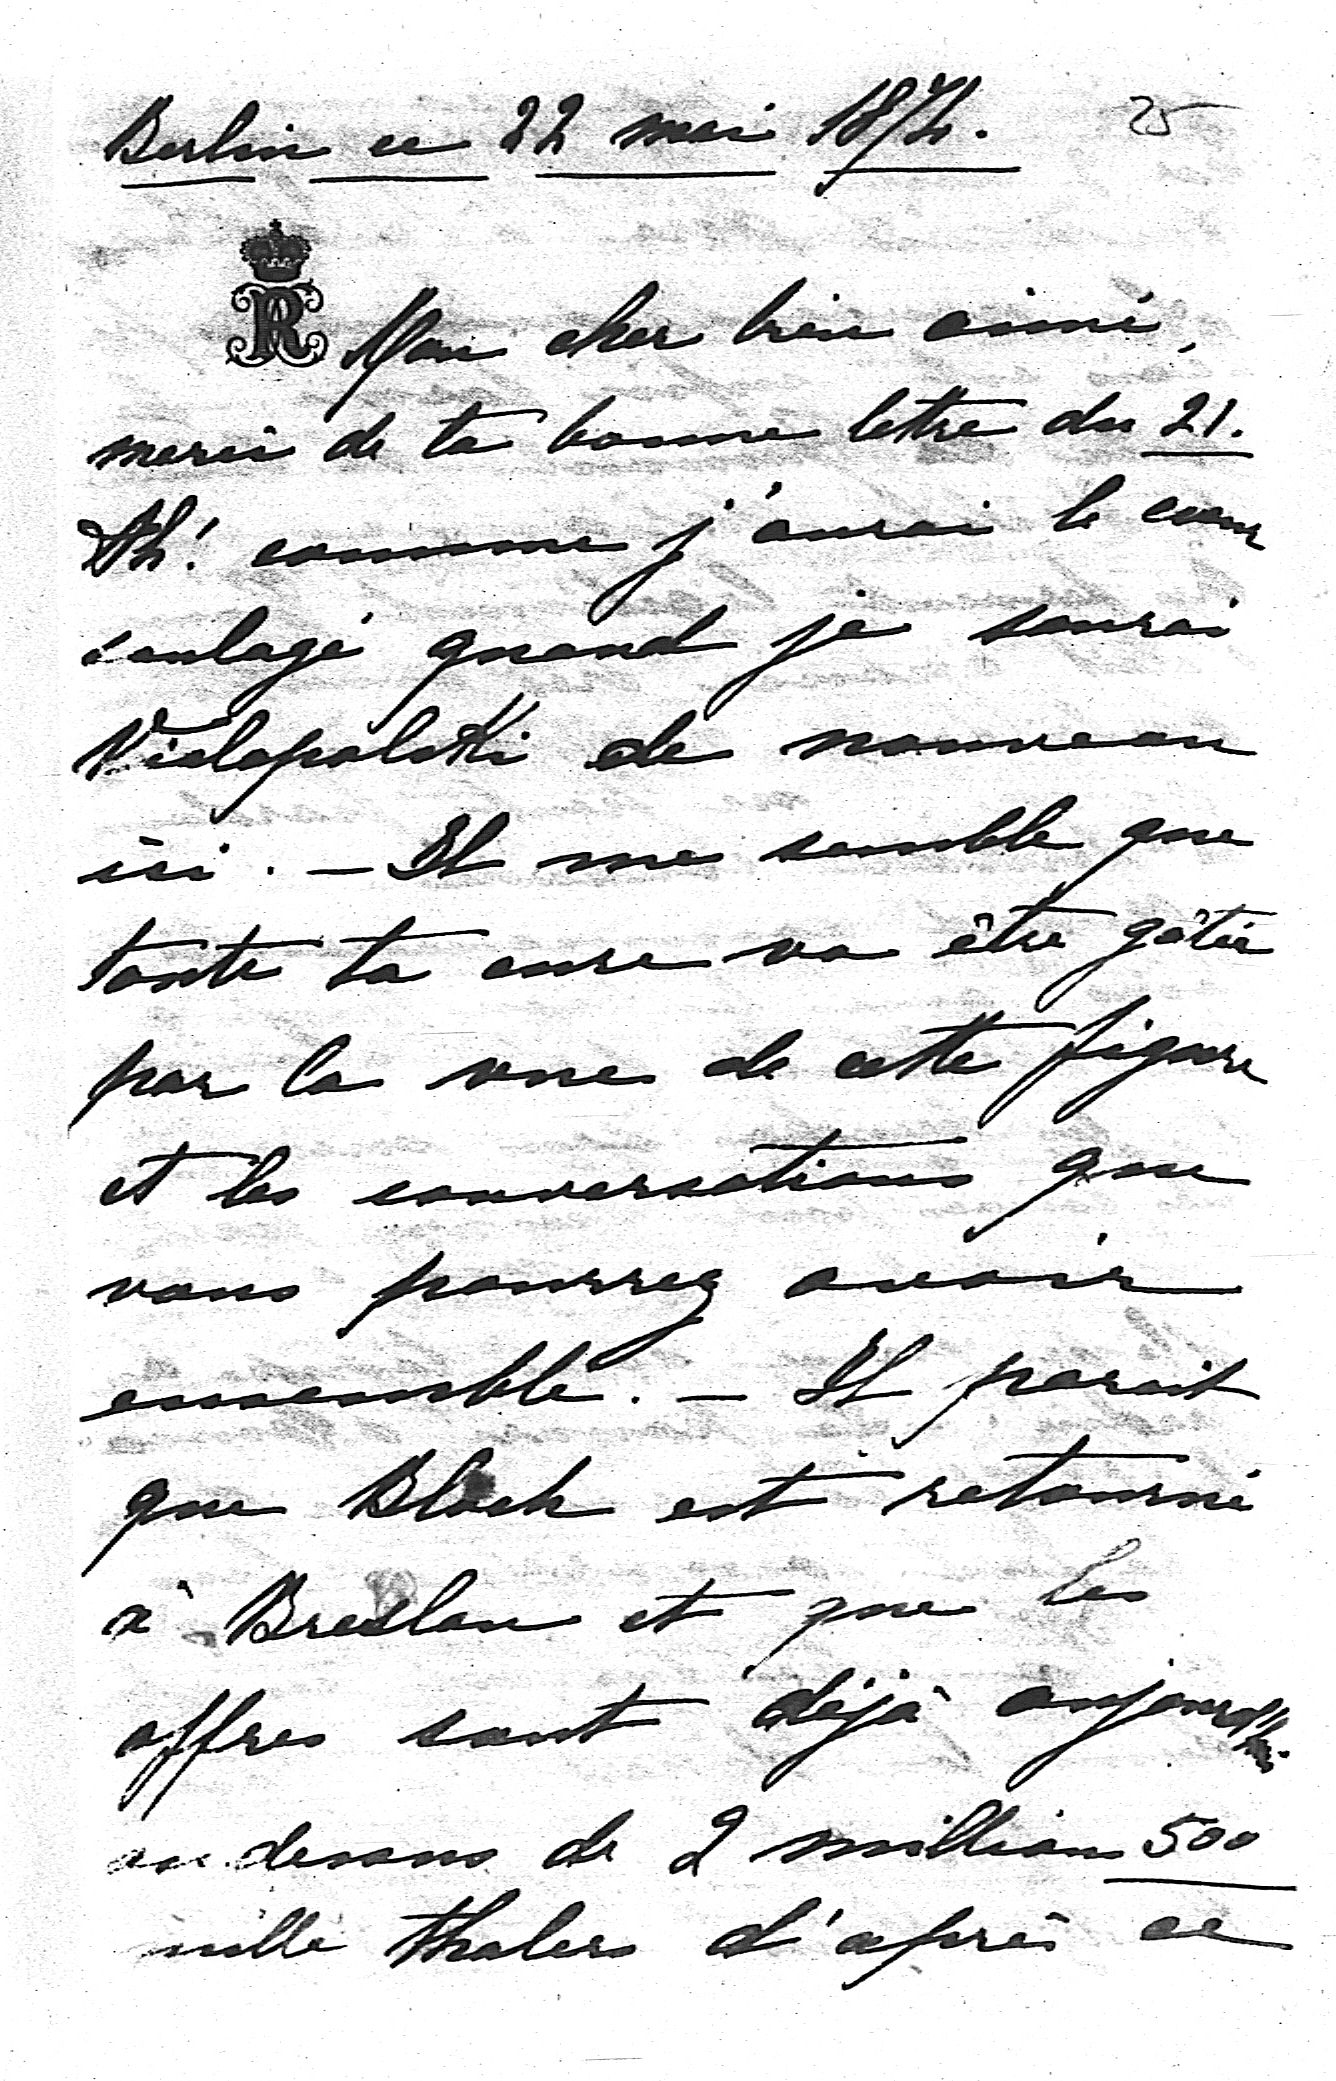 Berlin ce 22 mai 1871. 25
Mon cher bien aimé,
merci de ta bonne lettre du 21.
Ah! comme j'aurai le coeur
soulagé quand je saurai
Vielopolski de nouveau
ici. – Il me semble que
toute ta cure va être gâtée
par la vue de cette figure
et les conversations que
vous pourrez avoir
ensemble. – Il parait
que Bloch est retourné
à Breslau et que les
offres sont déjà aujourd'hui
au dessous de 2 millions 500
mille thalers d'après ce